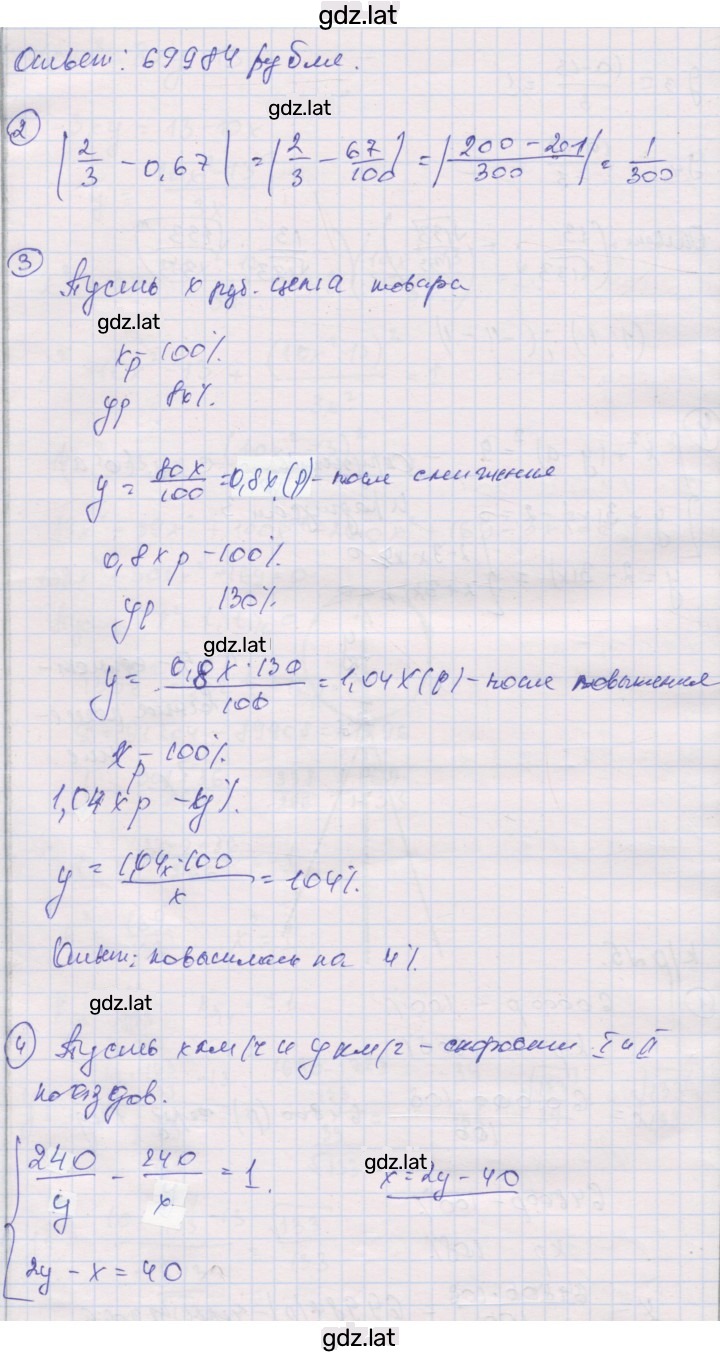 gdz.lat
Ответ: 69984 рубля.
gdz.lat
2
|2/3 - 0,67| = |2/3 - 67/100| = |(200 - 201)/300| = 1/300
3
Пусть x руб. цена товара
gdz.lat
xр - 100%
yр 80%
y = 80x/100 = 0,8x(р) - после снижения
0,8xр - 100%
yр 130%
gdz.lat
y = (0,8x · 130)/100 = 1,04x(р) - после повышения
xр - 100%
1,04xр - y%
y = (1,04x · 100)/x = 104%
Ответ: повысилась на 4%
gdz.lat
4 Пусть x км/ч и y км/ч - скорости I и II
поездов.
240/y - 240/x = 1
gdz.lat
x = 2y - 40
2y - x = 40
gdz.lat